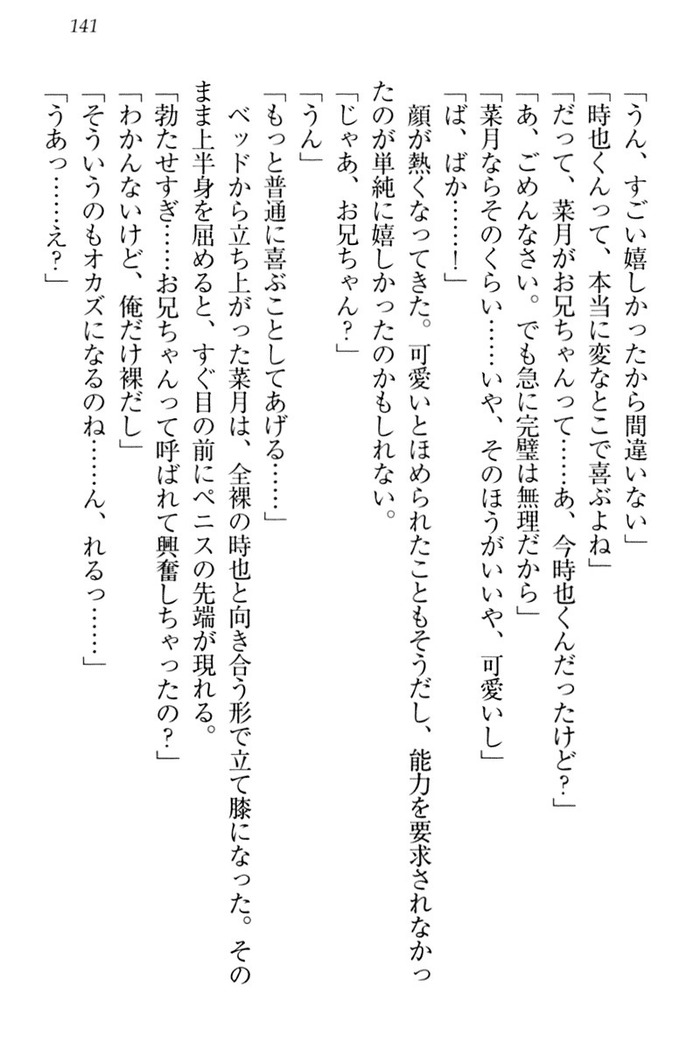 141
「うん、すごい嬉しかったから間違いない」
「時也くんって、本当に変なとこで喜ぶよね」
「だって、菜月がお兄ちゃんって……あ、今時也くんだったけど？」
「あ、ごめんなさい。でも急に完璧は無理だから」
「菜月ならそのくらい……いや、そのほうがいいや、可愛いし」
「ば、ばか……！」
顔が熱くなってきた。可愛いとほめられたこともそうだし、能力を要求されなかっ
たのが単純に嬉しかったのかもしれない。
「じゃあ、お兄ちゃん？」
「うん」
「もっと普通に喜ぶことしてあげる……」
ベッドから立ち上がった菜月は、全裸の時也と向き合う形で立て膝になった。その
まま上半身を屈めると、すぐ目の前にペニスの先端が現れる。
「勃たせすぎ……お兄ちゃんって呼ばれて興奮しちゃったの？」
「わかんないけど、俺だけ裸だし」
「そういうのもオカズになるのね……ん、れるっ……」
「うあっ……え？」